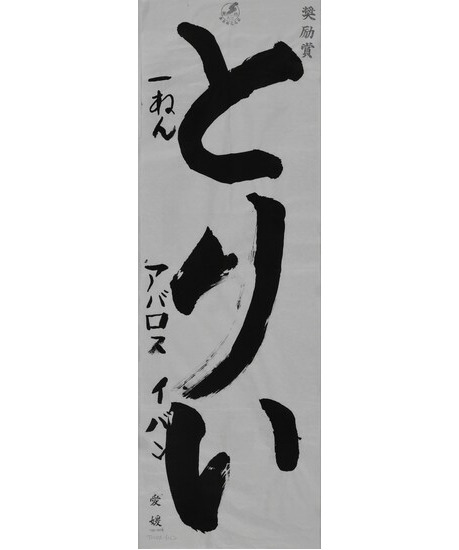 奨励賞
とりい
一ねん アバロス イバン
愛媛